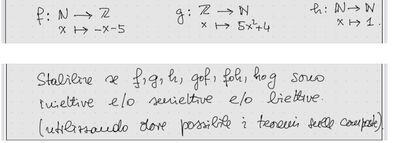 f: ℕ → ℤ g: ℤ → ℕ h: ℕ → ℕ
x ↦ -x-5 x ↦ 5x²+4 x ↦ 1.
Stabilire se f, g, h, g∘f, f∘h, h∘g sono
iniettive e/o suriettive e/o biettive.
(utilizzando dove possibile i teoremi sulle composte).